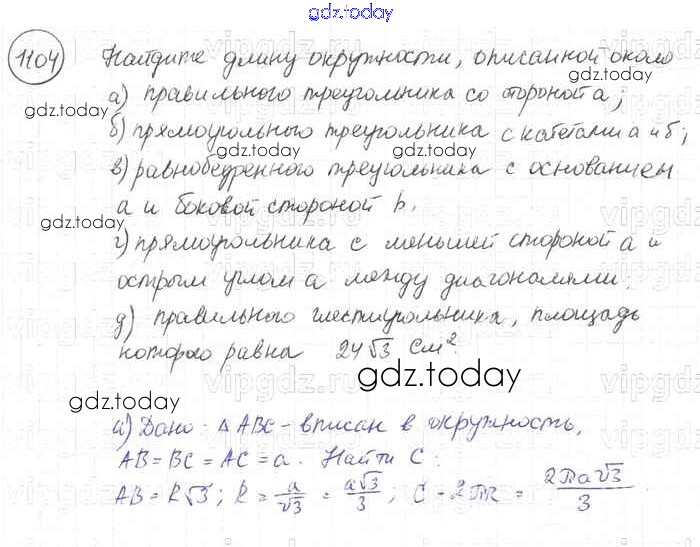 gdz.today
1104 Найдите длину окружности, описанной около
gdz.today
а) правильного треугольника со стороной а;
gdz.today
б) прямоугольного треугольника с катетами а и б;
gdz.today
gdz.today
в) равнобедренного треугольника с основанием
а и боковой стороной b.
gdz.today
г) прямоугольника с меньшей стороной а и
острым углом α между диагоналями;
gdz.today
д) правильного шестиугольника, площадь
которого равна 24√3 см².
gdz.today
gdz.today
а) Дано: △ABC - вписан в окружность,
AB = BC = AC = a. Найти C:
AB = R√3; R = a/√3 = a√3/3; C - 2πR = 2πa√3/3